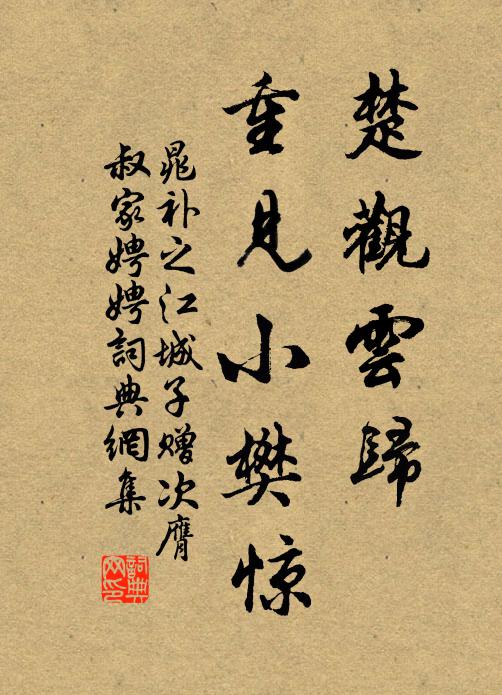 楚觀雲歸
重見小樊惊
晁补之江城子赠次膺
叔家娉娉詞典網集
詞典网印